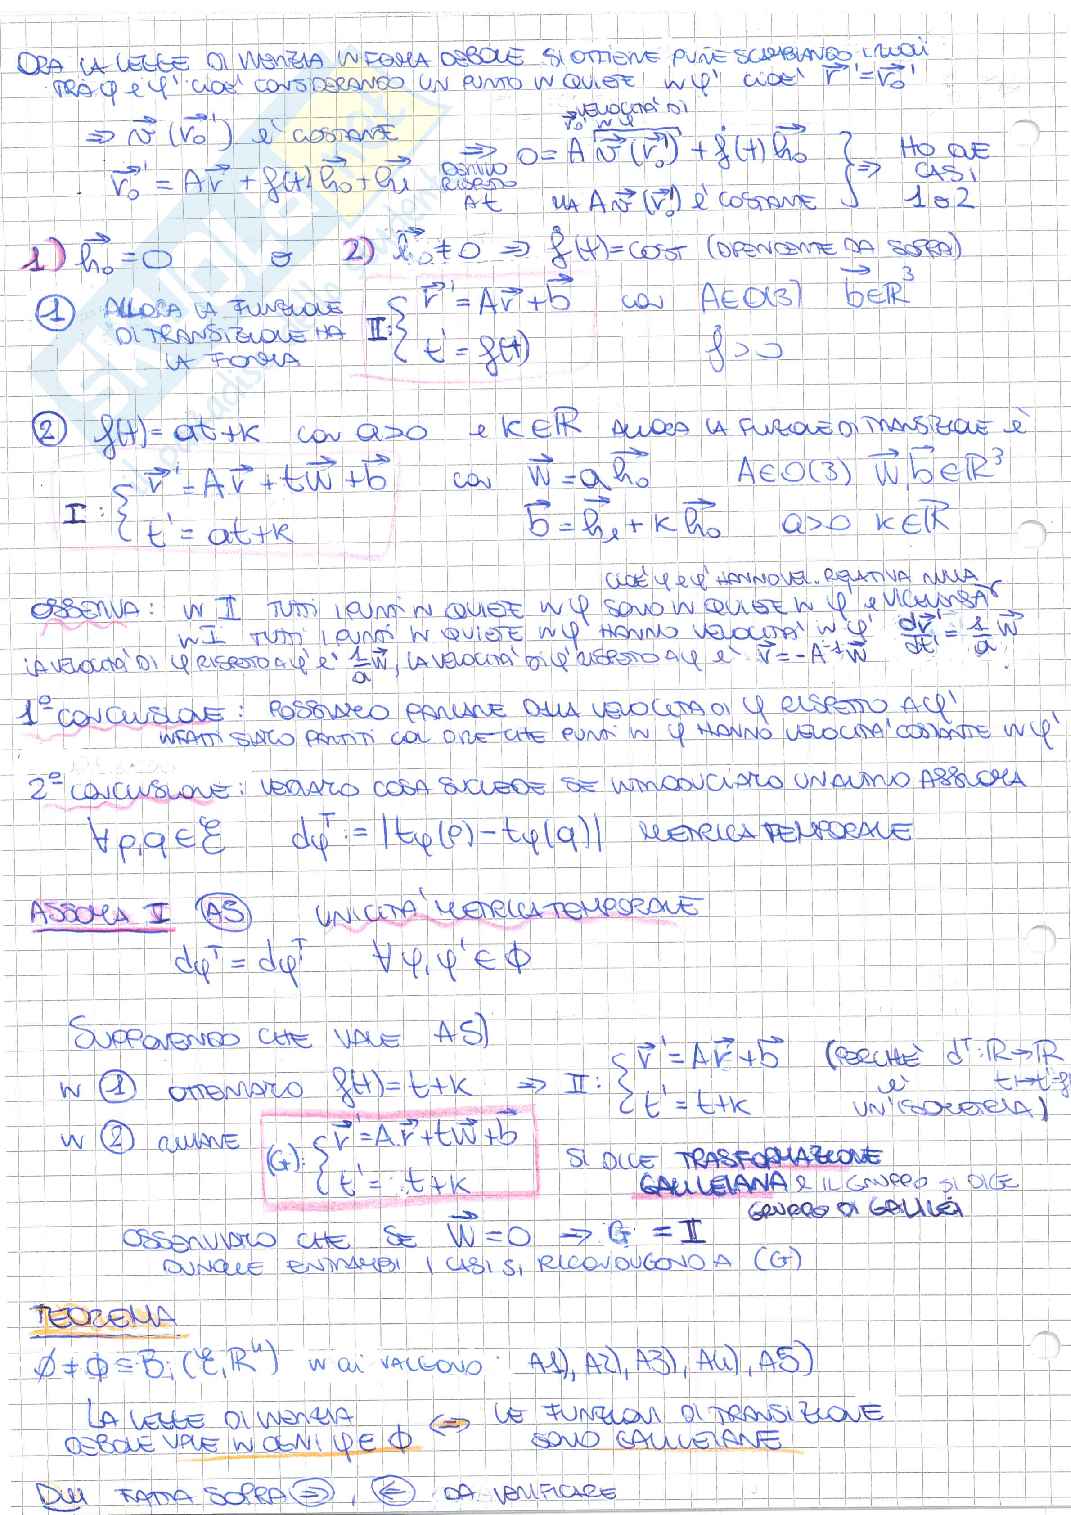 ORA LA LEGGE DI INERZIA IN FORMA DEBOLE SI OTTIENE PURE SCAMBIANDO I RUOLI
TRA φ E φ' CIOE' CONSIDERANDO UN PUNTO IN QUIETE IN φ' CIOE' r⃗' = r⃗₀'
⇒ v⃗(r⃗₀') E' COSTANTE
VELOCITA' DI r⃗₀' IN φ
r⃗₀' = Ar⃗ + f(t)h⃗₀ + h⃗₁ ⇒ DERIVO RISPETTO A t 0 = A v⃗(r⃗₀') + ḟ(t)h⃗₀
MA A v⃗(r⃗₀') E' COSTANTE } ⇒ HO DUE CASI 1 O 2
1) h⃗₀ = 0 o 2) h⃗₀ ≠ 0 ⇒ ḟ(t) = COST (DIPENDENTE DA SOPRA)
① ALLORA LA FUNZIONE DI TRANSIZIONE HA LA FORMA II: { r⃗' = Ar⃗ + b⃗ CON A∈O(3) b⃗∈ℝ³
t' = f(t) ḟ > 0
② f(t) = at+k CON a>0 E k∈ℝ ALLORA LA FUNZIONE DI TRANSIZIONE È
I: { r⃗' = Ar⃗ + tw⃗ + b⃗ CON w⃗ = ah⃗₀ A∈O(3) w⃗,b⃗∈ℝ³
t' = at+k b⃗ = h⃗₁ + kh⃗₀ a>0 k∈ℝ
CIOE' φ E φ' HANNO VEL. RELATIVA NULLA
OSSERVA: IN II TUTTI I PUNTI IN QUIETE IN φ SONO IN QUIETE IN φ' E VICEVERSA
IN I TUTTI I PUNTI IN QUIETE IN φ HANNO VELOCITA' IN φ' dr⃗'/dt' = 1/a w⃗
LA VELOCITA' DI φ RISPETTO A φ' E' 1/a w⃗, LA VELOCITA' DI φ' RISPETTO A φ E' v⃗ = -A⁻¹w⃗
1ª CONCLUSIONE: POSSIAMO PARLARE DELLA VELOCITA DI φ RISPETTO A φ'
INFATTI SIAMO PARTITI COL DIRE CHE PUNTI IN φ HANNO VELOCITA' COSTANTE IN φ'
2ª CONCLUSIONE: VEDIAMO COSA SUCCEDE SE INTRODUCIAMO UN ULTIMO ASSIOMA
∀p,q∈ℰ dφᵀ := |tφ(p) - tφ(q)| METRICA TEMPORALE
ASSIOMA V (A5) UNICITA' METRICA TEMPORALE
dφᵀ = dφ'ᵀ ∀φ,φ'∈Φ
SUPPONENDO CHE VALE A5)
IN ① OTTENIAMO f(t) = t+k ⇒ II: { r⃗' = Ar⃗ + b⃗ (PERCHÉ dᵀ: ℝ→ℝ
t' = t+k E' t↦t'=f UN'ISOMETRIA)
IN ② RIMANE (G): { r⃗' = Ar⃗ + tw⃗ + b⃗
t' = t+k
SI DICE TRASFORMAZIONE
GALILEIANA E IL GRUPPO SI DICE
GRUPPO DI GALILEI
OSSERVIAMO CHE SE w⃗ = 0 ⇒ G = II
DUNQUE ENTRAMBI I CASI SI RICONDUCONO A (G)
TEOREMA
∅ ≠ Φ ⊆ Bi(ℰ,ℝ⁴) IN CUI VALGONO A1), A2), A3), A4), A5)
LA LEGGE DI INERZIA ⇔ LE FUNZIONI DI TRANSIZIONE
DEBOLE VALE IN OGNI φ∈Φ SONO GALILEIANE
DIM FATTA SOPRA ⇒, ⇐ DA VERIFICARE